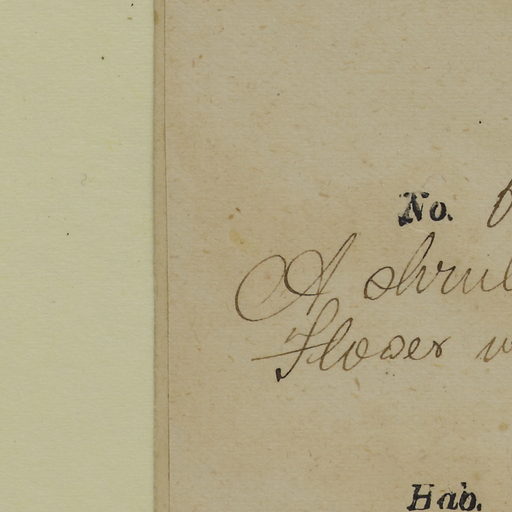 No.
A shrub
Flower
Hab.